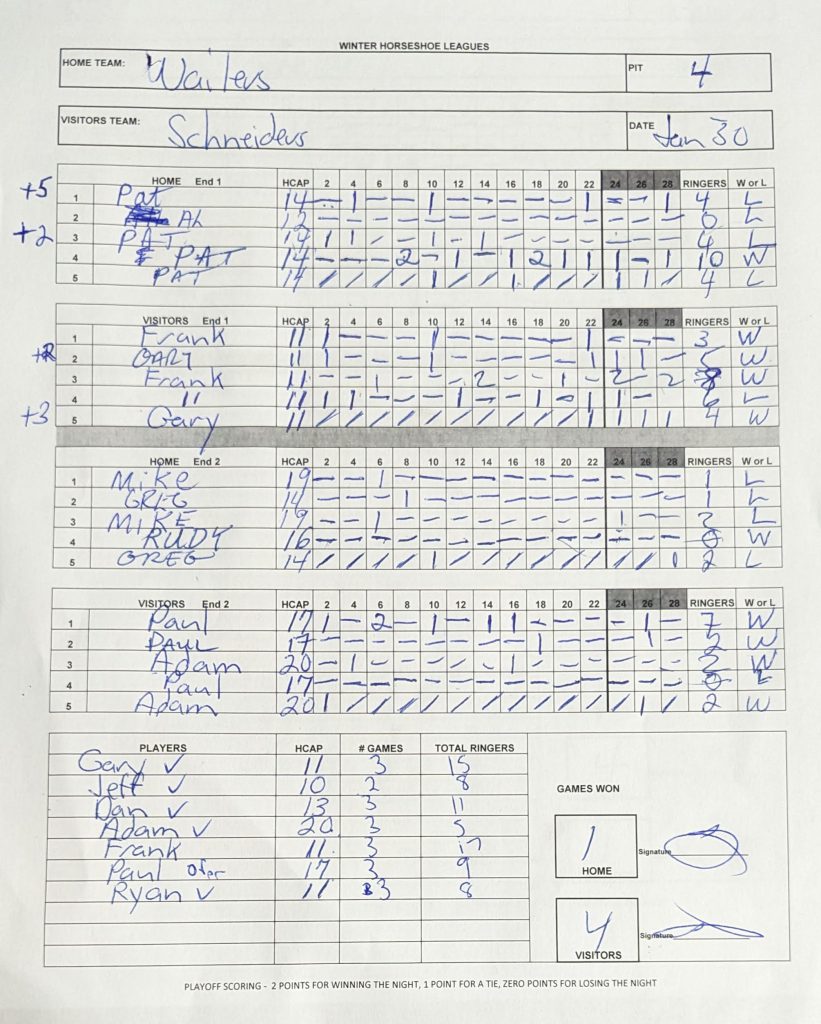 WINTER HORSESHOE LEAGUES
HOME TEAM: Wailers PIT 4
VISITORS TEAM: Schneiders DATE Jan 30
HOME End 1 HCAP 2 4 6 8 10 12 14 16 18 20 22 24 26 28 RINGERS W or L
+5 1 Pat 14 — 1 — — 1 — — — — — 1 — — 1 4 L
2 AL 12 — — — — — — — — — — — — — — 0 L
+2 3 PAT 14 1 1 — — 1 — 1 — — — — — — — 4 L
4 PAT 14 — — — 2 — 1 — 1 2 1 1 1 — 1 10 W
5 PAT 14 / / / / 1 / / 1 / / / 1 1 / 4 L
VISITORS End 1 HCAP 2 4 6 8 10 12 14 16 18 20 22 24 26 28 RINGERS W or L
1 Frank 11 1 — — — 1 — — — — — 1 — — — 3 W
2 GARY 11 1 — — — 1 — — — — — 1 1 1 — 5 W
3 Frank 11 — — 1 — — — 2 — — 1 — 2 — 2 8 W
4 11 11 1 1 — — — 1 — — 1 — 1 1 — — 6 L
+3 5 Gary 11 / / / / / / / / / / 1 1 1 1 4 W
HOME End 2 HCAP 2 4 6 8 10 12 14 16 18 20 22 24 26 28 RINGERS W or L
1 MIKE 19 — — 1 — — — — — — — — — — — 1 L
2 GREG 14 — — — 1 — — — — — — — — — — 1 L
3 MIKE 19 — — 1 — — — — — — — — 1 — — 2 L
4 RUDY 16 — — — — — — — — — — — — — — 0 W
5 GREG 14 / / / / 1 / / / / / / / / 1 2 L
VISITORS End 2 HCAP 2 4 6 8 10 12 14 16 18 20 22 24 26 28 RINGERS W or L
1 Paul 17 1 — 2 — 1 — 1 1 — — — — 1 — 7 W
2 PAUL 17 — — — — — — — — 1 — — — — — 2 W
3 Adam 20 — 1 — — — — — 1 — — — — — — 2 W
4 Paul 17 — — — — — — — — — — — — — — 0 L
5 Adam 20 1 / / / / / / / / / / / 1 / 2 W
PLAYERS HCAP # GAMES TOTAL RINGERS
Gary ✓ 11 3 15
Jeff ✓ 10 2 8
Dan ✓ 13 3 11
Adam ✓ 20 3 5
Frank 11 3 17
Paul 17 3 9
Ryan ✓ 11 3 8
GAMES WON
1 Signature
HOME
4 Signature
VISITORS
PLAYOFF SCORING - 2 POINTS FOR WINNING THE NIGHT, 1 POINT FOR A TIE, ZERO POINTS FOR LOSING THE NIGHT